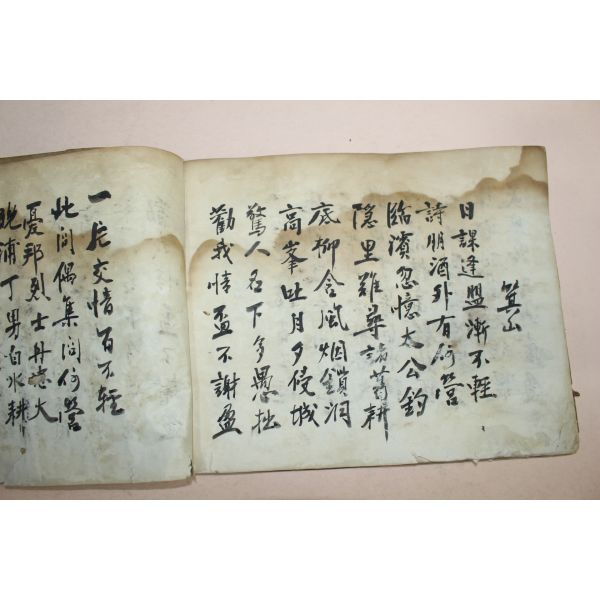 箕山
日課逢盟漸不輕
詩朋酒外有何營
臨濱忽憶太公釣
隱里難尋諸葛耕
底柳含風烟鎖洞
高峯吐月夕侵城
驚人名下多愚拙
勸我情盃不謝盈
一片交情百不輕
此間偶集問何營
憂邦烈士丹忠大
晩浦丁男白水耕